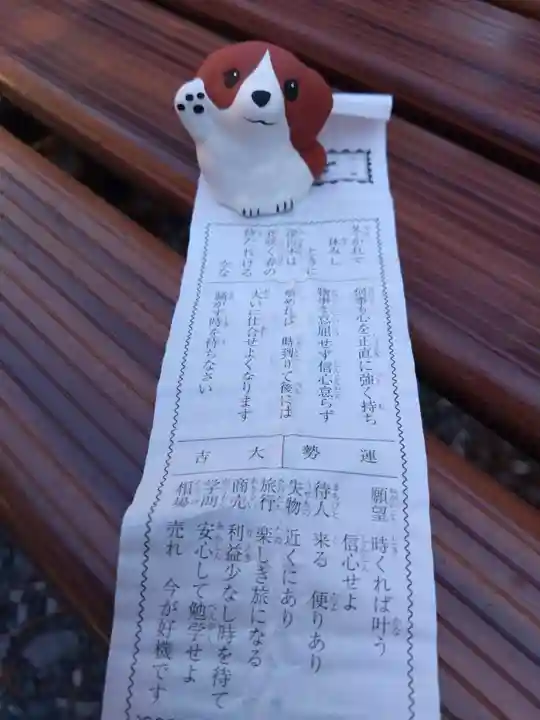 冬がれて
休みし
ときに
深山木は
花咲く春の
待たれける
かな
何事も心を正直に強く持ち
物事を退屈せず信心怠らず
勤めれば 時到りて後には
大いに仕合せよくなります
騒がず時を待ちなさい
運勢 大吉
願望 時くれば叶う
信心せよ
待人 来る 便りあり
失物 近くにあり
旅行 楽しき旅になる
商売 利益少なし時を待て
学問 安心して勉学せよ
相場 売れ 今が好機です